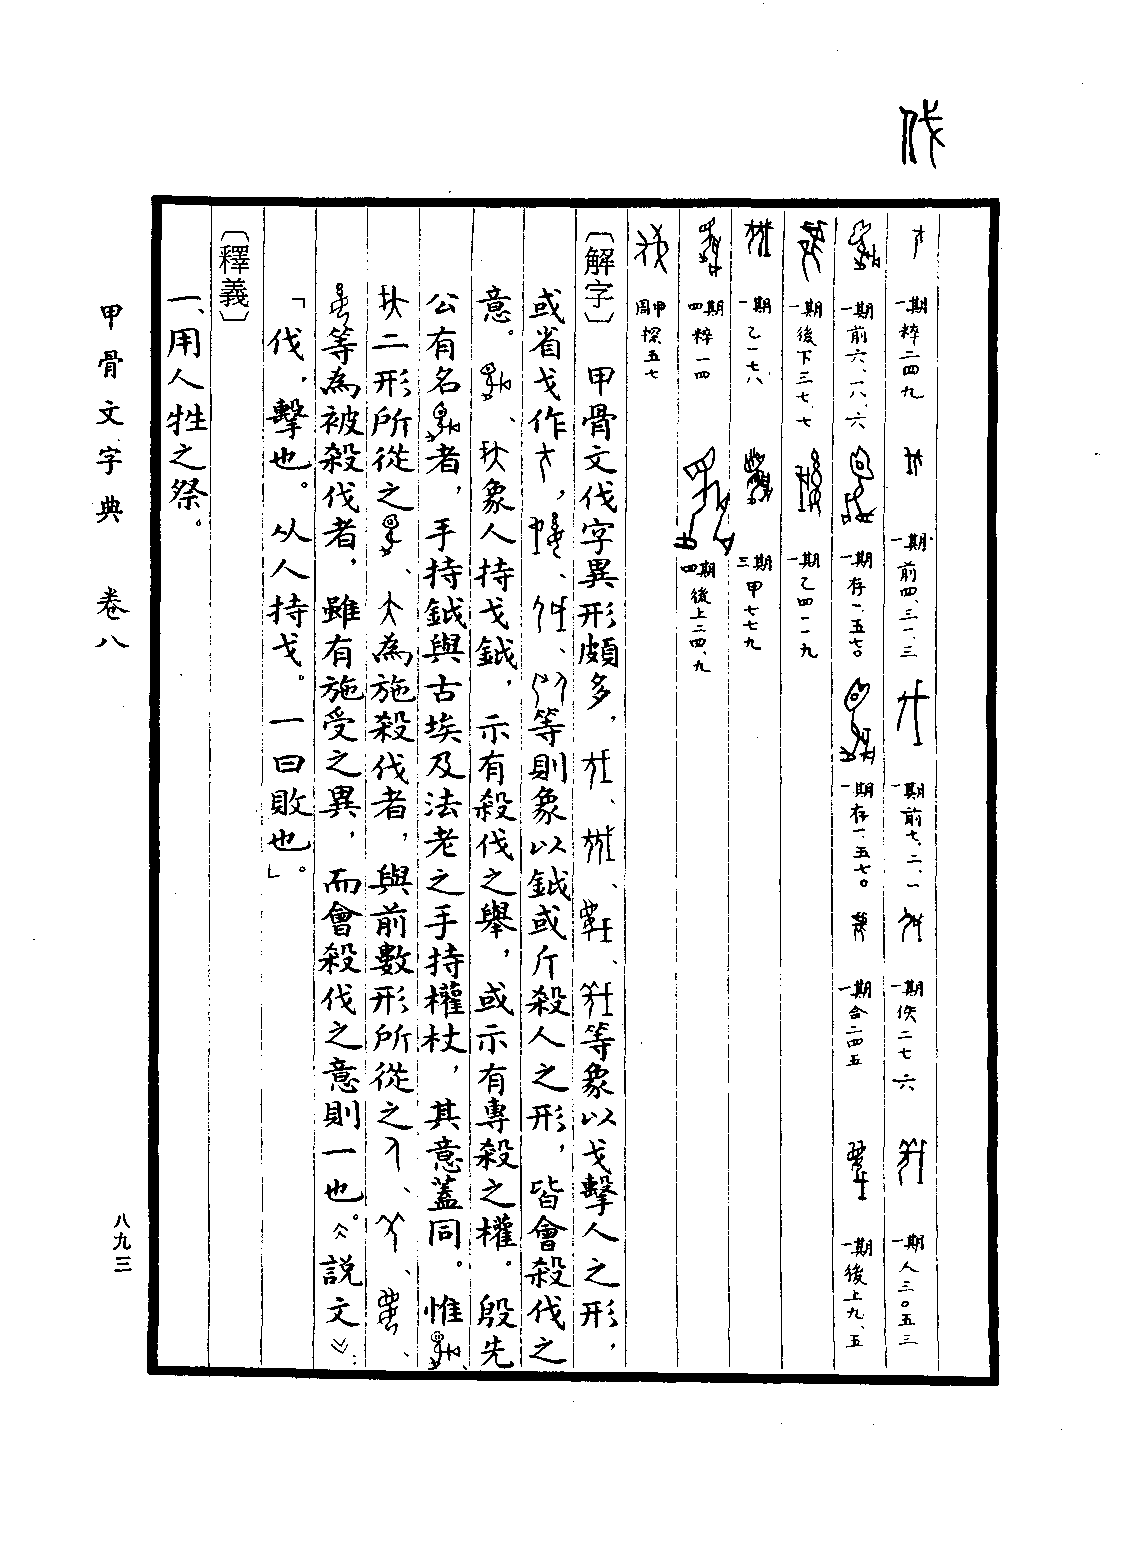 伐
一期粹二四九
一期前四、三一、三
一期前七、二、一
一期佚二七六
一期人三〇五三
一期前六、一八、六
一期存一、五七〇
一期存一、五七〇
一期合二四五
一期後上九、五
一期後下三七、七
一期乙四一一九
一期乙一七八
三期甲七七九
四期粹一四
四期後上二四、九
周甲探五七
〔解字〕甲骨文伐字異形頗多，、、、等象以戈擊人之形，
或省戈作，、、等則象以鉞或斤殺人之形，皆會殺伐之
意。、象人持戈鉞，示有殺伐之舉，或示有專殺之權。殷先
公有名者，手持鉞與古埃及法老之手持權杖，其意蓋同。惟、
二形所從之、為施殺伐者，與前數形所從之、、、
等為被殺伐者，雖有施受之異，而會殺伐之意則一也。《說文》：
「伐，擊也。从人持戈。一曰敗也。」
〔釋義〕
一、用人牲之祭。
甲骨文字典　卷八
八九三